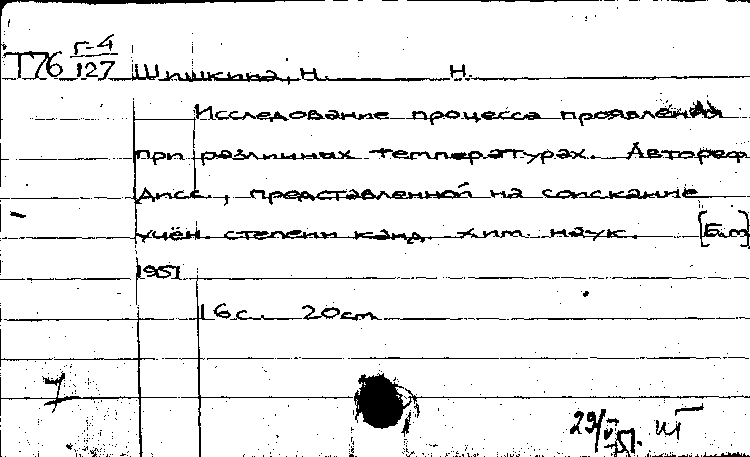 Т76 г-4/127 Шишкина, Н. Н.
Исследование процесса проявления
при различных температурах. Автореф
дисс., представленной на соискание
учён. степени канд. хим. наук. [Б.м]
1951
16 с. 20 cm
7
29/V-51.